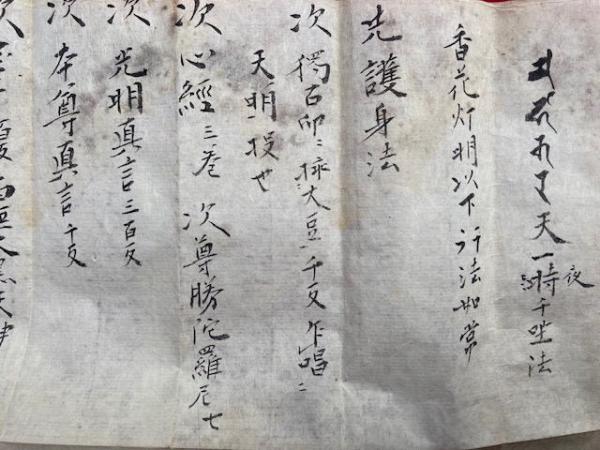 天一時千坐法
夜
香花灯明以下行法如常
先護身法
次獨古印ニ挾大豆一千反乍唱ニ
天明投也
次心經三巻 次尊勝陀羅尼七
次光明真言三百反
次本尊真言千反
次